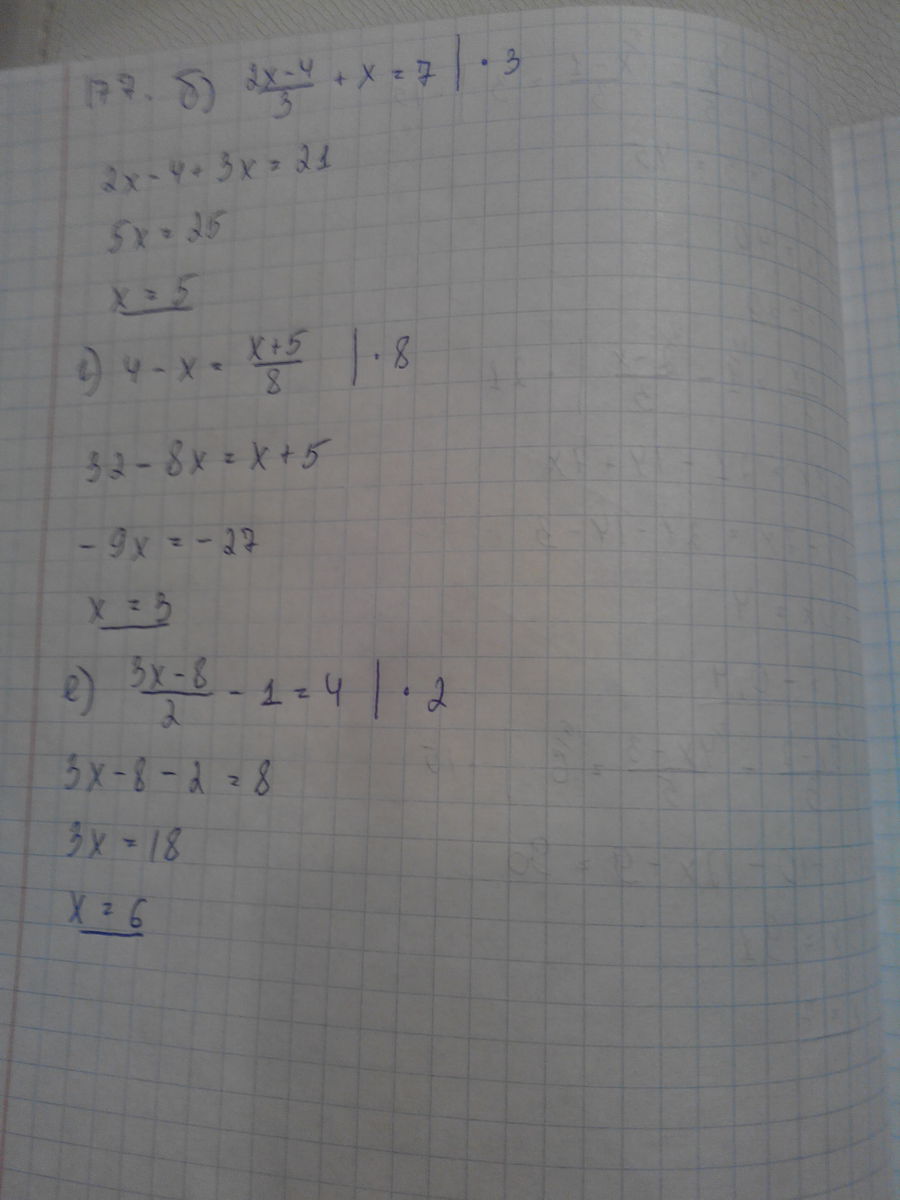 177. б) (2x-4)/3 + x = 7 | · 3
2x - 4 + 3x = 21
5x = 25
x = 5
г) 4 - x = (x+5)/8 | · 8
32 - 8x = x + 5
-9x = -27
x = 3
е) (3x-8)/2 - 1 = 4 | · 2
3x - 8 - 2 = 8
3x = 18
x = 6